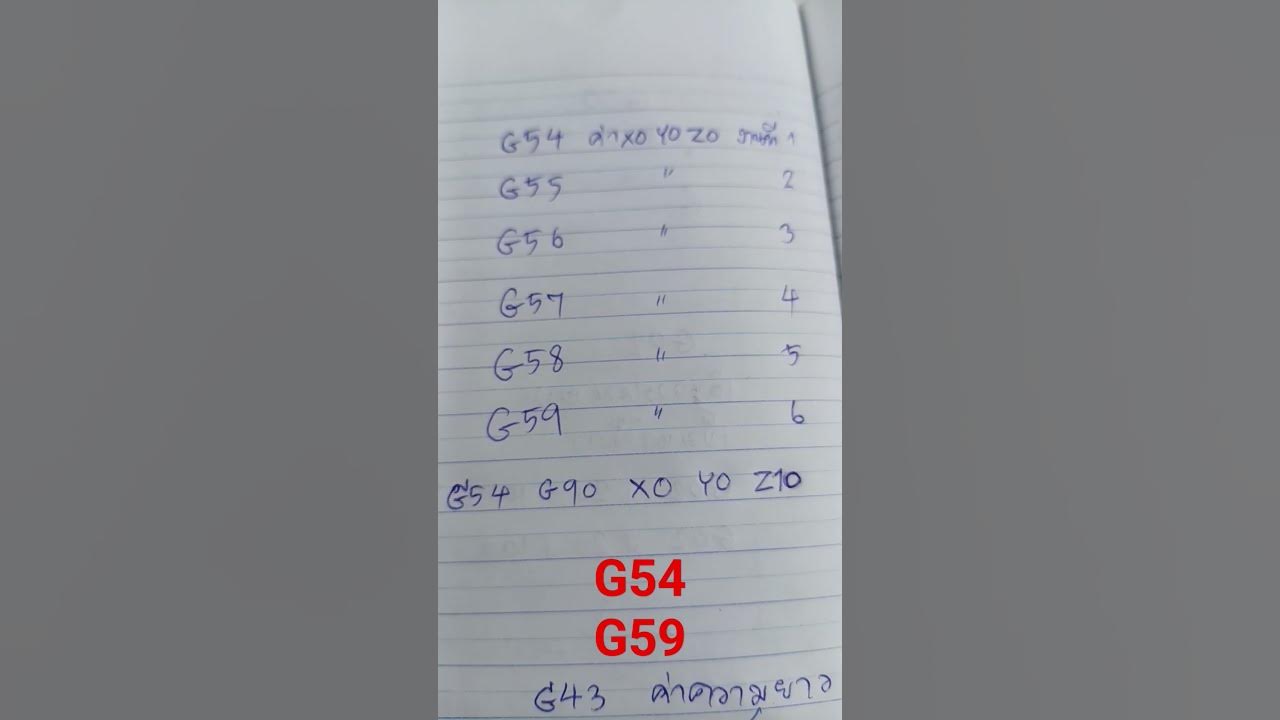 G54 ค่า X0 Y0 Z0 งานที่ 1
G55 " 2
G56 " 3
G57 " 4
G58 " 5
G59 " 6
G54 G90 X0 Y0 Z10
G54
G59
G43 ค่าความยาว